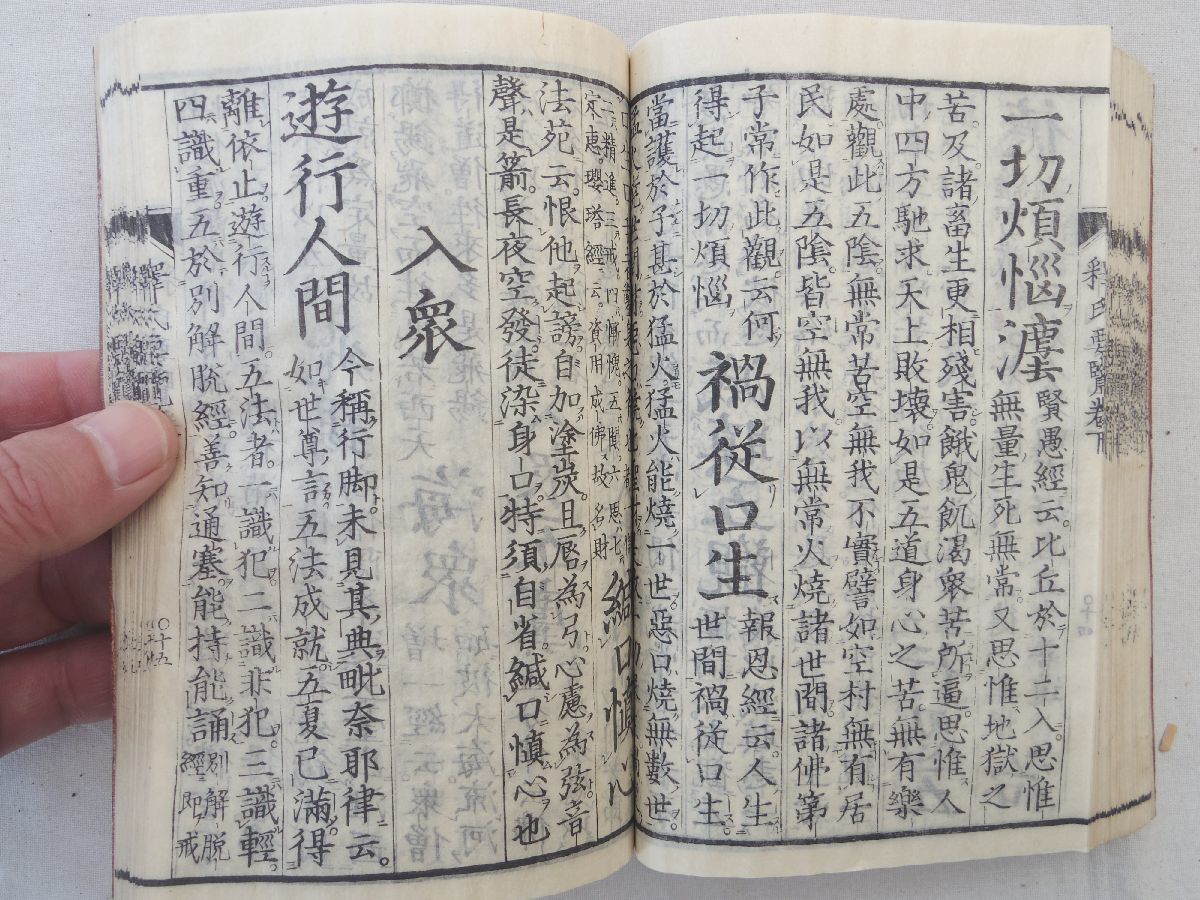 一切煩惱漏 賢愚經云。比丘於十二入。思惟
無量生死無常。又思惟地獄之
苦及諸畜生更相殘害餓鬼飢渴衆苦所逼思惟人
中四方馳求天上敗壞如是五道身心之苦無有樂
處觀此五陰無常苦空無我不實譬如空村無有居
民如是五陰皆空無我以無常火燒諸世間諸佛第
子常作此觀云何
得起一切煩惱
禍從口生 報恩經云人生
世間禍從口生
當護於子甚於猛火猛火能燒一世惡口燒無數世。
緘口慎心
定惠。瓔珞經云。資用成佛故名財
法苑云。恨他起謗自加塗炭且唇為弓心慮為弦音
聲是箭。長夜空發徒染身口。特須自省緘口慎心也
入衆
遊行人間 今稱行脚未見其典毗奈耶律云。
如世尊言五法成就五夏已滿得
離依止。遊行人間。五法者。一識犯二識非犯三識輕
四識重五於別解脫經善知通塞能持能誦 別解脫
經即戒
釈氏要覽卷下
〇十五